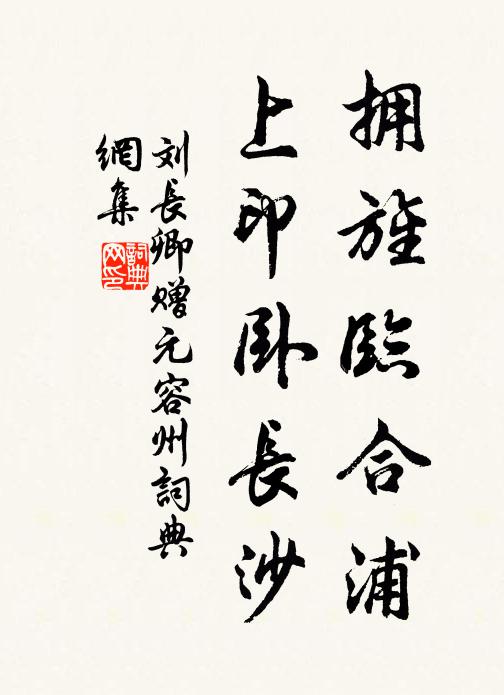 拥旌臨合浦
上印卧長沙
刘長卿赠元容州詞典
網集
詞典網印